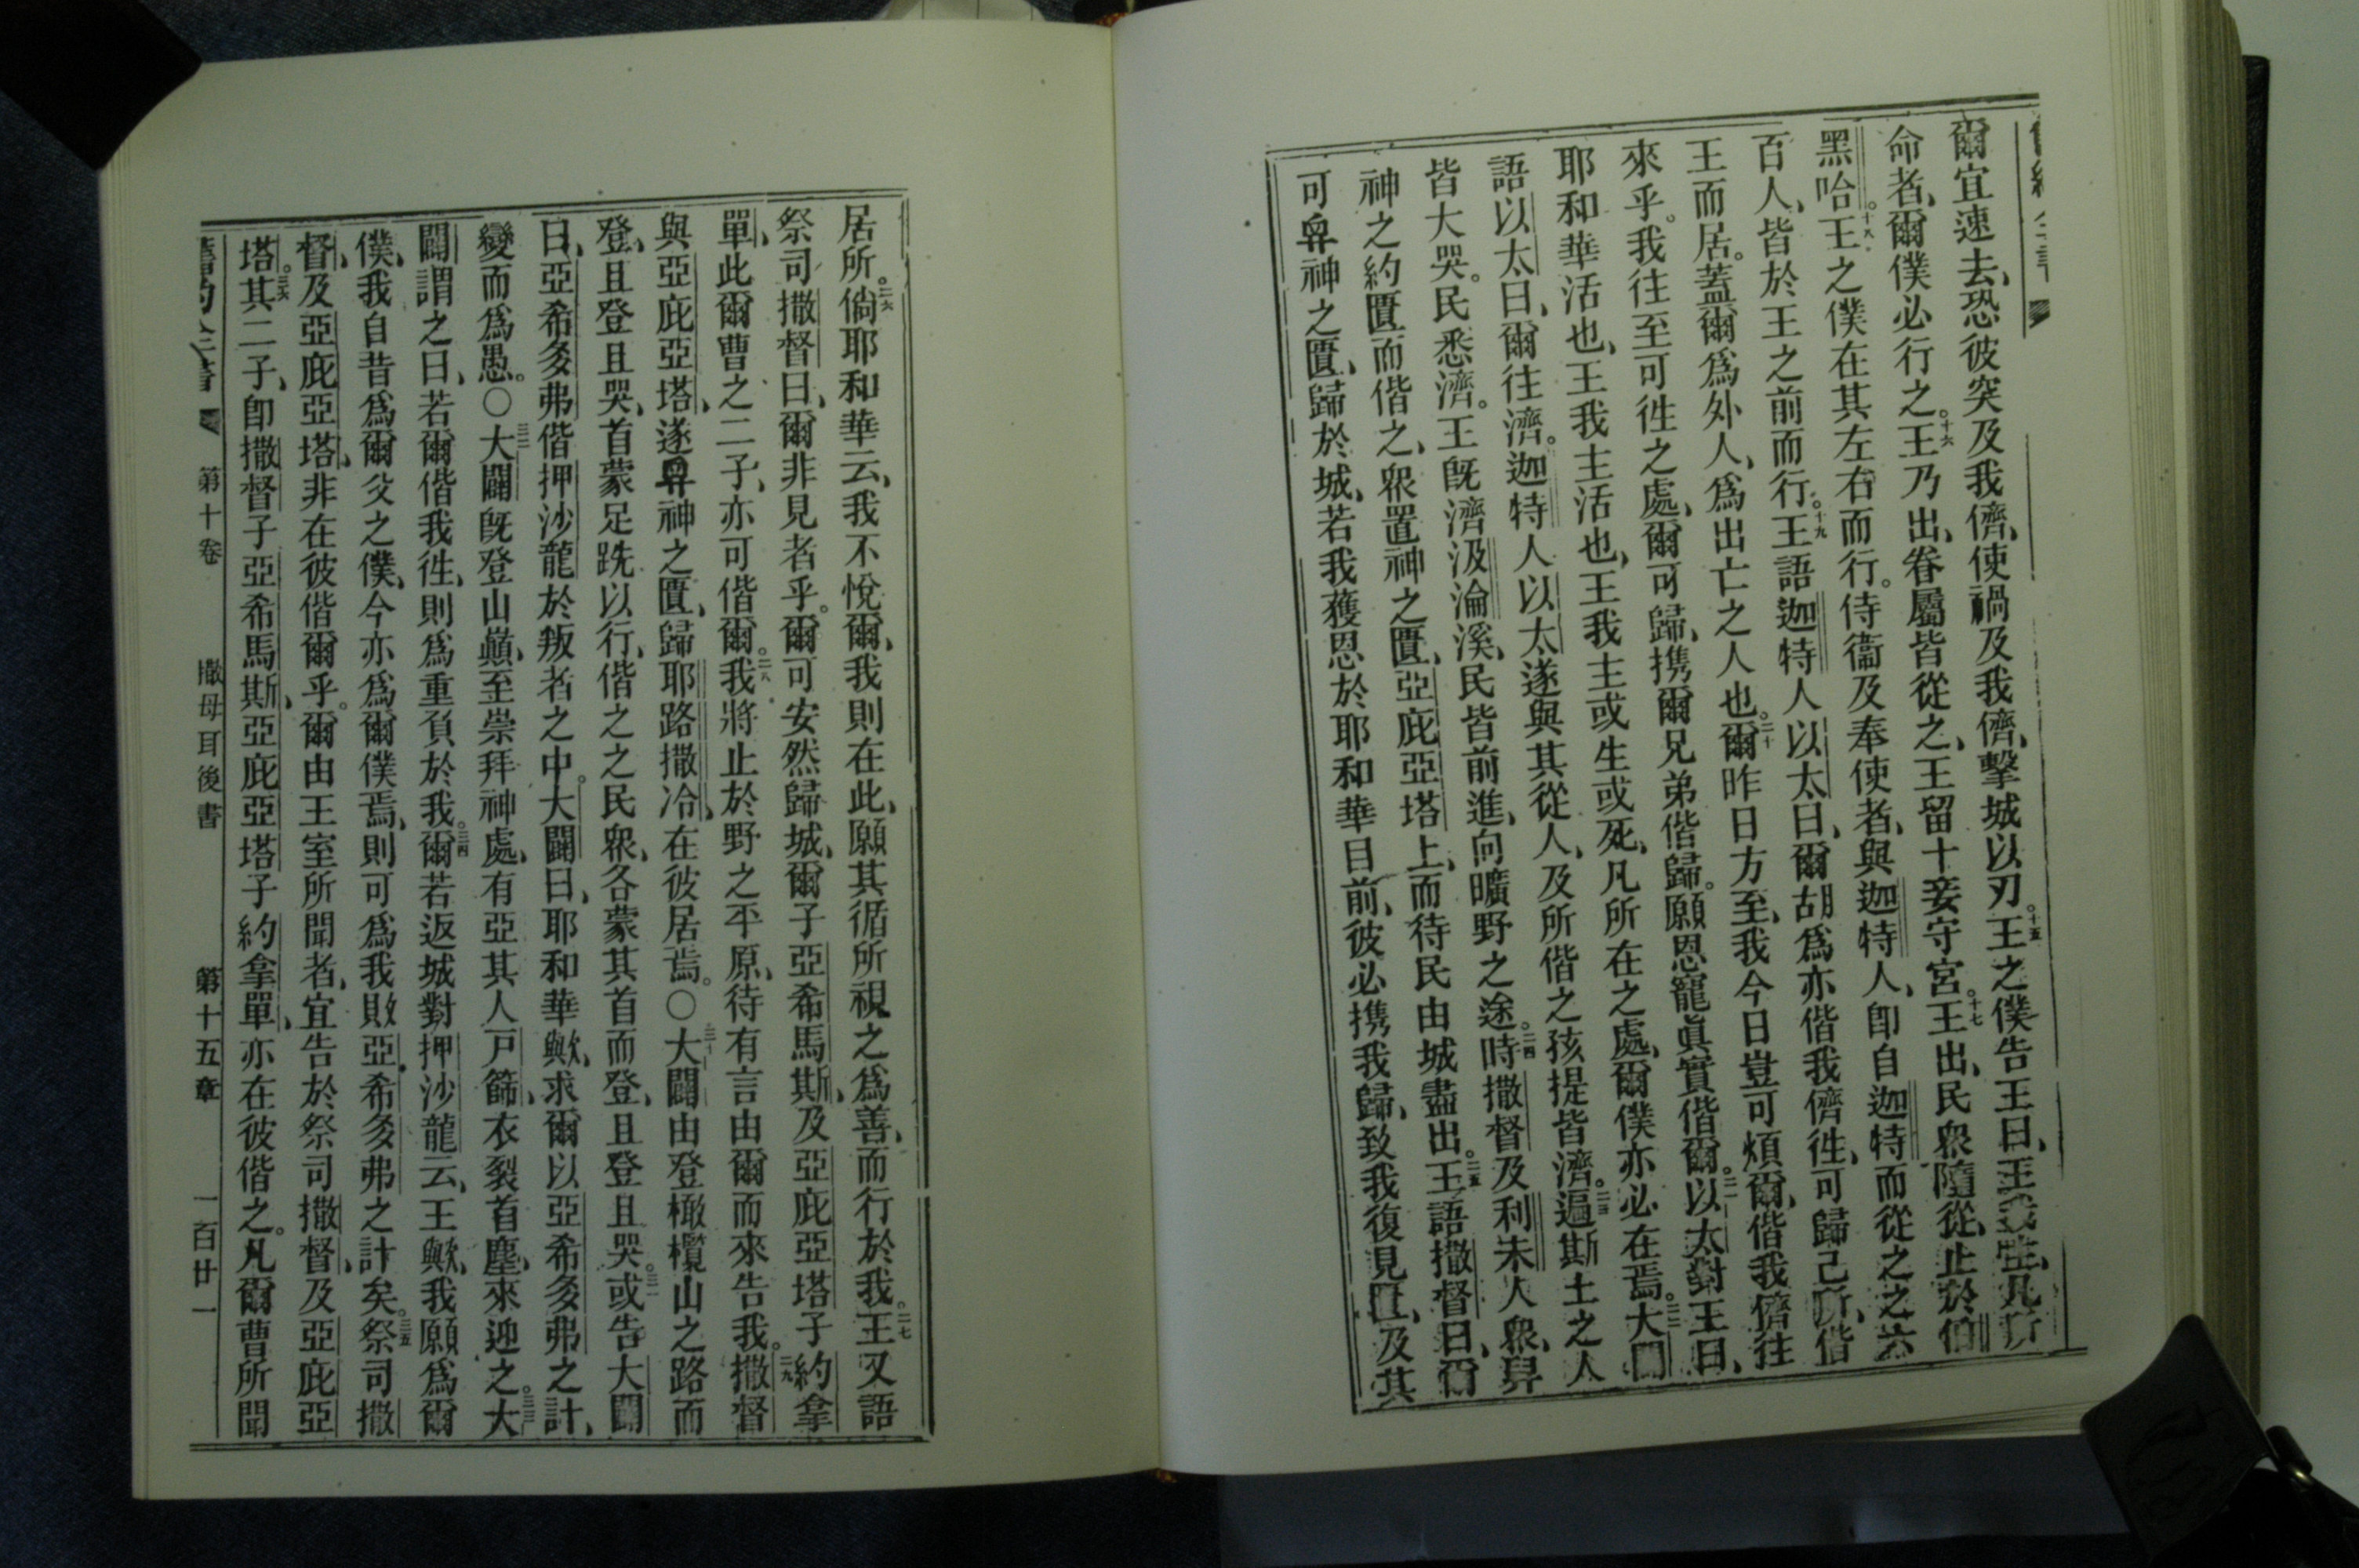 爾宜速去、恐彼突及我儕、使禍及我儕、擊城以刃。十五王之僕告王曰、王我
命者、爾僕必行之。十六王乃出、眷屬皆從之、王留十妾守宮。十七王出、民衆隨從、止於伯
黑哈。十八王之僕在其左右而行。侍衞及奉使者、與迦特人、卽自迦特而從之之六
百人、皆於王之前而行。十九王語迦特人以太曰、爾胡爲亦偕我儕徃、可歸己所、偕
王而居。蓋爾爲外人、爲出亡之人也。二十爾昨日方至、我今日豈可煩爾、偕我儕往
來乎。我往至可徃之處、爾可歸、携爾兄弟偕歸。願恩寵眞實偕爾。二一以太對王曰、
耶和華活也、王我主活也、王我主或生或死、凡所在之處、爾僕亦必在焉。二二大闢
語以太曰、爾往濟。迦特人以太遂與其從人、及所偕之孩提皆濟。二三遍斯土之人
皆大哭。民悉濟。王旣濟汲淪溪、民皆前進、向曠野之途。二四時撒督及利未人衆、舁
神之約匱而偕之、衆置神之匱、亞庇亞塔上、而待民由城盡出。二五王語撒督曰、爾
可舁神之匱、歸於城、若我獲恩於耶和華目前、彼必携我歸、致我復見匱、及其
居所。二六倘耶和華云、我不悅爾、我則在此、願其循所視之爲善、而行於我。二七王又語
祭司撒督曰、爾非見者乎。爾可安然歸城、爾子亞希馬斯、及亞庇亞塔子約拿
單、此爾曹之二子、亦可偕爾。二八我將止於野之平原、待有言由爾而來告我。二九撒督
與亞庇亞塔、遂舁神之匱、歸耶路撒冷、在彼居焉。○三十大闢由登橄欖山之路而
登、且登且哭、首蒙足跣以行、偕之之民衆、各蒙其首而登、且登且哭。三一或告大闢
曰、亞希多弗偕押沙龍於叛者之中。大闢曰、耶和華歟、求爾以亞希多弗之計、
變而爲愚。○三二大闢旣登山巔、至崇拜神處、有亞其人戸篩、衣裂首塵、來迎之。三三大
闢謂之曰、若爾偕我徃、則爲重負於我。三四爾若返城對押沙龍云、王歟、我願爲爾
僕、我自昔爲爾父之僕、今亦爲爾僕焉、則可爲我敗亞希多弗之計矣。三五祭司撒
督、及亞庇亞塔、非在彼偕爾乎。爾由王室所聞者、宜告於祭司撒督、及亞庇亞
塔。三六其二子、卽撒督子亞希馬斯、亞庇亞塔子約拿單、亦在彼偕之。凡爾曹所聞
舊約全書 第十卷 撒母耳後書 第十五章 一百廿一